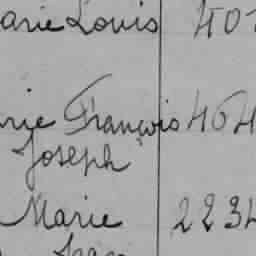 arie Louis 40
rie François 464
Joseph
Marie 223